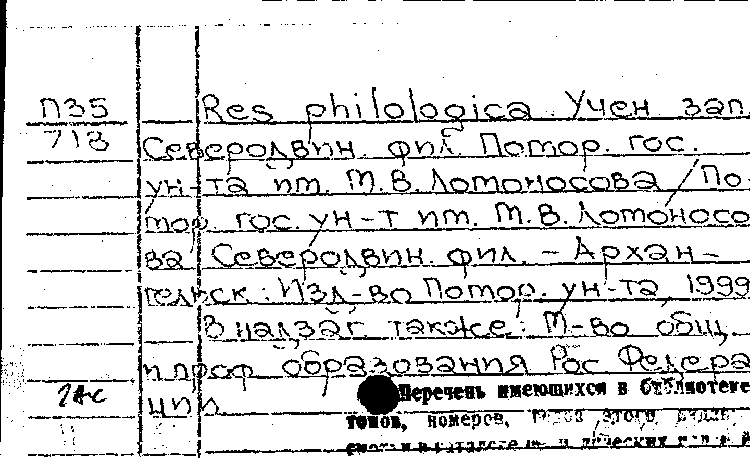 П35 Res philologica. Учен зап.
713 Северодвин. фил. Помор. гос.
ун-та им. М.В. Ломоносова / По-
мор. гос. ун-т им. М.В. Ломоносо
ва Северодвин. фил. – Архан-
гельск: Изд-во Помор. ун-та, 1999
В надзаг также: М-во общ
и проф образования Рос Федера
ции.
Перечень имеющихся в библиотеке
томов, номеров, этого